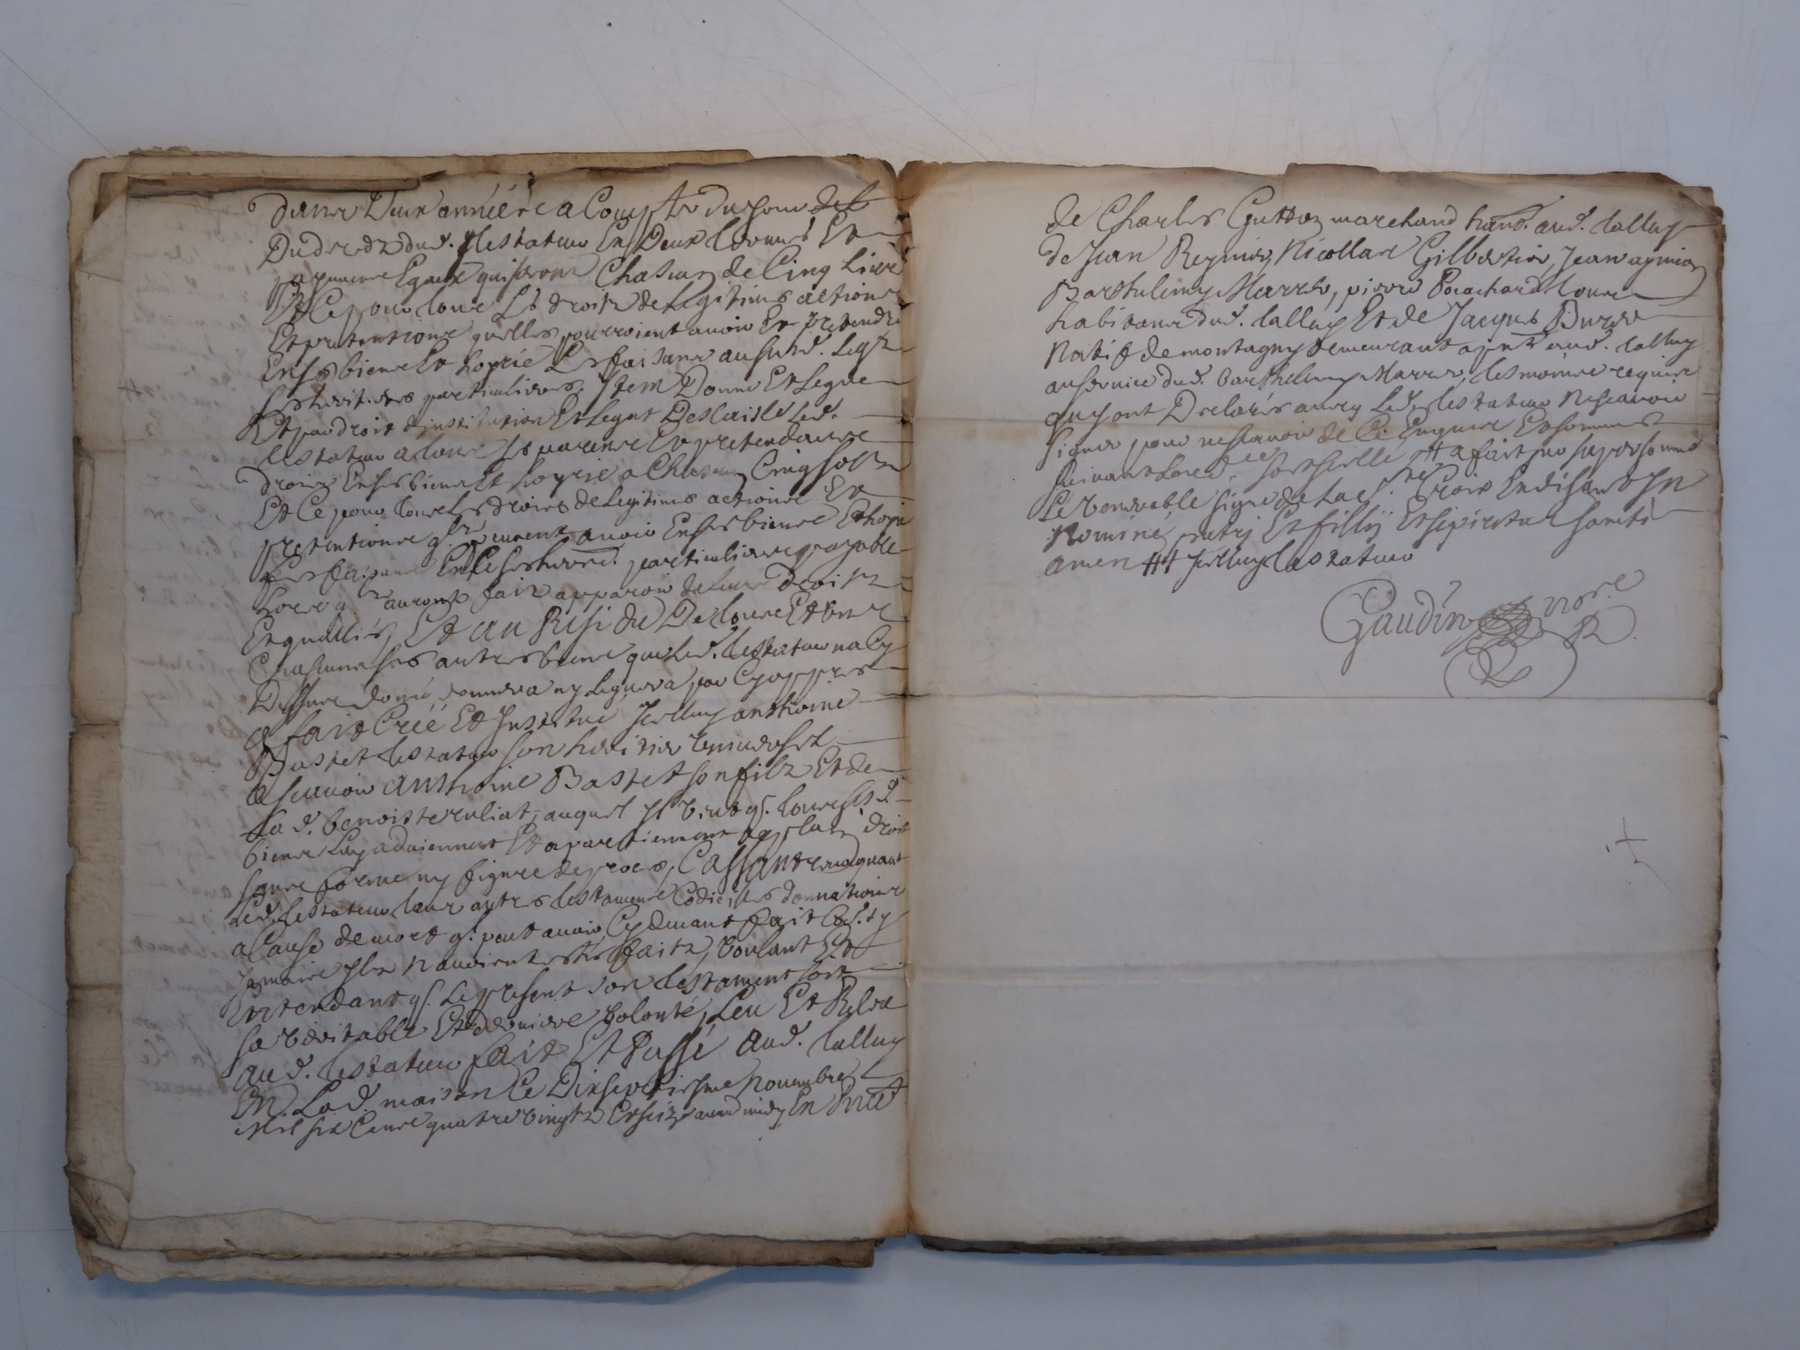 dans Deux années a Compter du jour del
Du deceds dud. Testateur En Deux termes Et
payemens Egaux qui seront Chascun de Cinq Livres
Et Ce pour tous Les droits de Legitime actions
Et pretentions quelles pourroient avoir Et pretendre
En ses biens Et hoyrie Les faisant au surd. Legz
ses heritieres particulieres, Item Donne Et Legue
Et par droit d'institution Et Legat Delaisse Led.
testateur a tous ses parens Et pretendans
droits En ses biens Et hoyrie a Chascun Cinq solz
Et Ce pour tous Les droits de Legitime actions Et
pretentions qu'ils peuvent avoir En ses biens Et hoyrie
Les faisant En Ce ses heres. particuliers payable
Lors qu'ils auront fait apparoir de leurs droits
Et qualités, Et au Residu De tous Et uns
Chascuns ses autres biens que Led. testateur na Cy
Dessus donné donnera ny Leguera par Cy appres
a fait Créé Et Institué Icelluy anthoine
Basset testateur son heritier universel
ascavoir anthoine Basset son filz Et de
lad. benoiste ruliat, auquel Il veut q. tous sesd.
biens Luy adviennent Et apartiennent de plain droit
sans forme ny figure de proces, Cassant revoquant
Led. testateur tous autres testamens Codiciles donnations
a Cause de mort q. peut avoir Cydevant fait Co. sy
Jamais Ilz n'avoient estés faitz, voulant Et
Entendant q. Le present son testament soit
sa veritable Et derniere volonté, Leu Et Releu
aud. testateur fait Et Passé aud. talluy
En Lad. maison Ce Dixseptiesme novembre
Mil six Cens quatre vingtz Et seize avant midy En Pnce
de Charles Gutton marchand hant. aud. talluy
de Jean Reynier, Nicollas Gilbertier, Jean aymion
Barthelemy Marrel, pierre Porachard tous
habitans dud. talluy Et de Jacques
Natif de montagny demeurant apnt aud. talluy
au service dud. barthelemy Marrel, tesmoins requis
quy ont Declarés avec Led. testateur Ne scavoir
signer pour ne scavoir de Ce Enquis Et sommés
suivant Lord.ce sort Icelle a fait sa personne
Le venerable signe de La Ste Croix En disant In
Nomine patris Et filij Et spiritus sancti
amen Icelluy testateur
Gaudin nore.